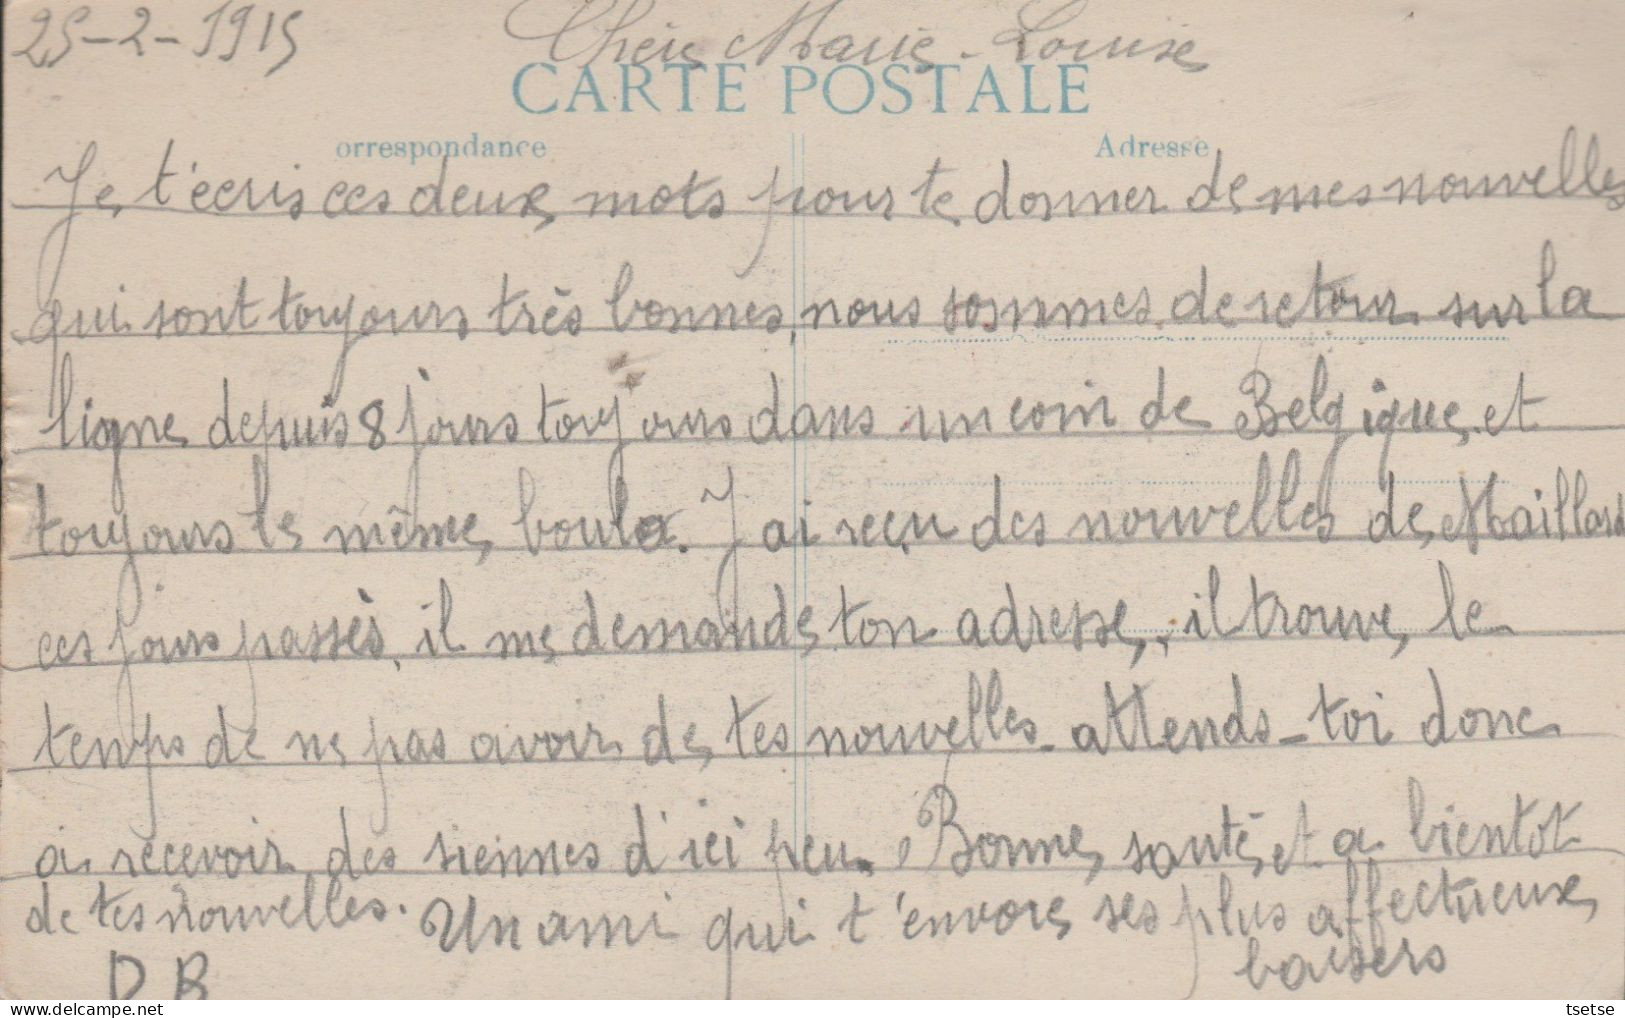 25-2-1915 Chère Marie-Louise
CARTE POSTALE
orrespondance Adresse
Je t'écris ces deux mots pour te donner de mes nouvelles
qui sont toujours très bonnes, nous sommes de retour sur la
ligne depuis 8 jours toujours dans un coin de Belgique, et
toujours le même boulo. J'ai reçu des nouvelles de Maillard
ces jours passés, il me demande ton adresse, il trouve le
temps de ne pas avoir de tes nouvelles attends-toi donc
a recevoir des siennes d'ici peu. Bonne santé, et a bientot
de tes nouvelles. Un ami qui t'envoie ses plus affectueux
baisers
D B
tsetse